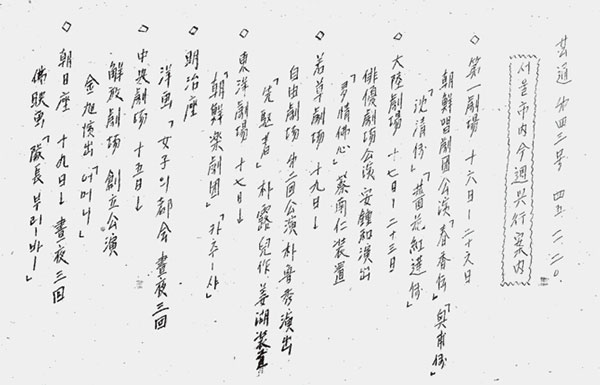 芸通 第四三号 四五、一一、二〇、
서울市內今週興行案內
◇ 第一劇場 十六日ー二十六日
朝鮮唱劇團公演「春香傳」「興甫傳」
「沈淸傳」「薔花紅蓮傳」
◇ 大陸劇場 十七日ー二十三日
俳優劇場公演 安鍾和演出
「多情佛心」 蔡南仁裝置
◇ 若草劇場 十九日ー
自由劇場 第二回公演 朴魯春演出
「先駆者」 朴露兒作 姜湖裝置
◇ 東洋劇場 十七日ー
「朝鮮楽劇團」「카츄ー샤」
◇ 明治座
洋画「女子의都会」 晝夜三回
◇ 中央劇場 十五日ー
解放劇場 創立公演
金旭演出「어머니」
◇ 朝日座 十九日ー 晝夜三回
佛映画「隊長부리ー바ー」